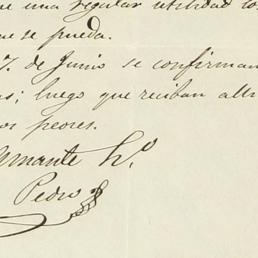 una regular utilidad los
se pueda.
7. de Junio se confirman
as; luego que reciban alli
os peores.
Amante h.º
Pedro